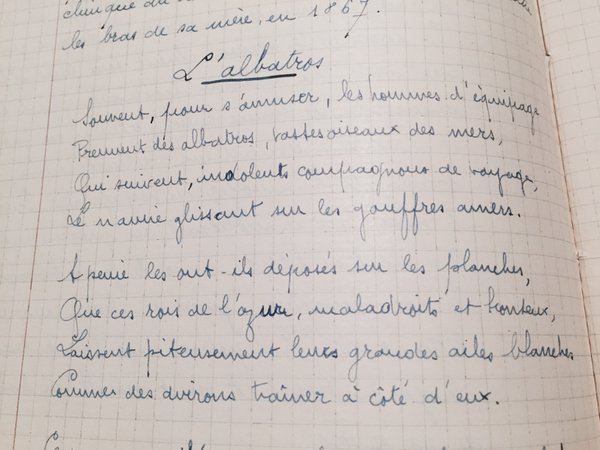 clinique du
les bras de sa mère, en 1867.
L'albatros
Souvent, pour s'amuser, les hommes d'équipage
Prennent des albatros, vastes oiseaux des mers,
Qui suivent, indolents compagnons de voyage,
Le navire glissant sur les gouffres amers.
A peine les ont-ils déposés sur les planches,
Que ces rois de l'azur, maladroits et honteux,
Laissent piteusement leurs grandes ailes blanches
Comme des avirons traîner à côté d'eux.